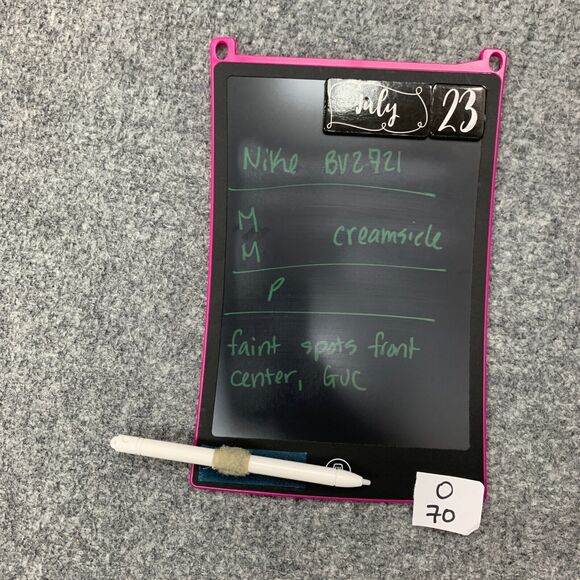 July 23
Nike BV2721
M
M creamsicle
P
faint spots front
center, GUC
O
70